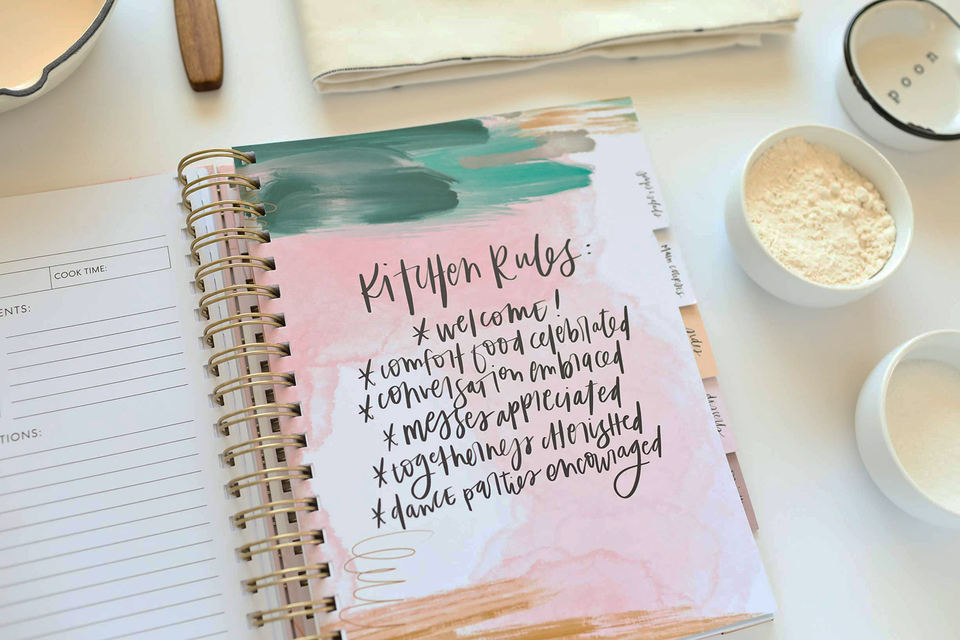 COOK TIME:
ENTS:
TIONS:
Kitchen Rules:
* welcome!
* comfort food celebrated
* conversation embraced
* messes appreciated
* togetherness cherished
* dance parties encouraged
soups & salads
main courses
sides
desserts
poon